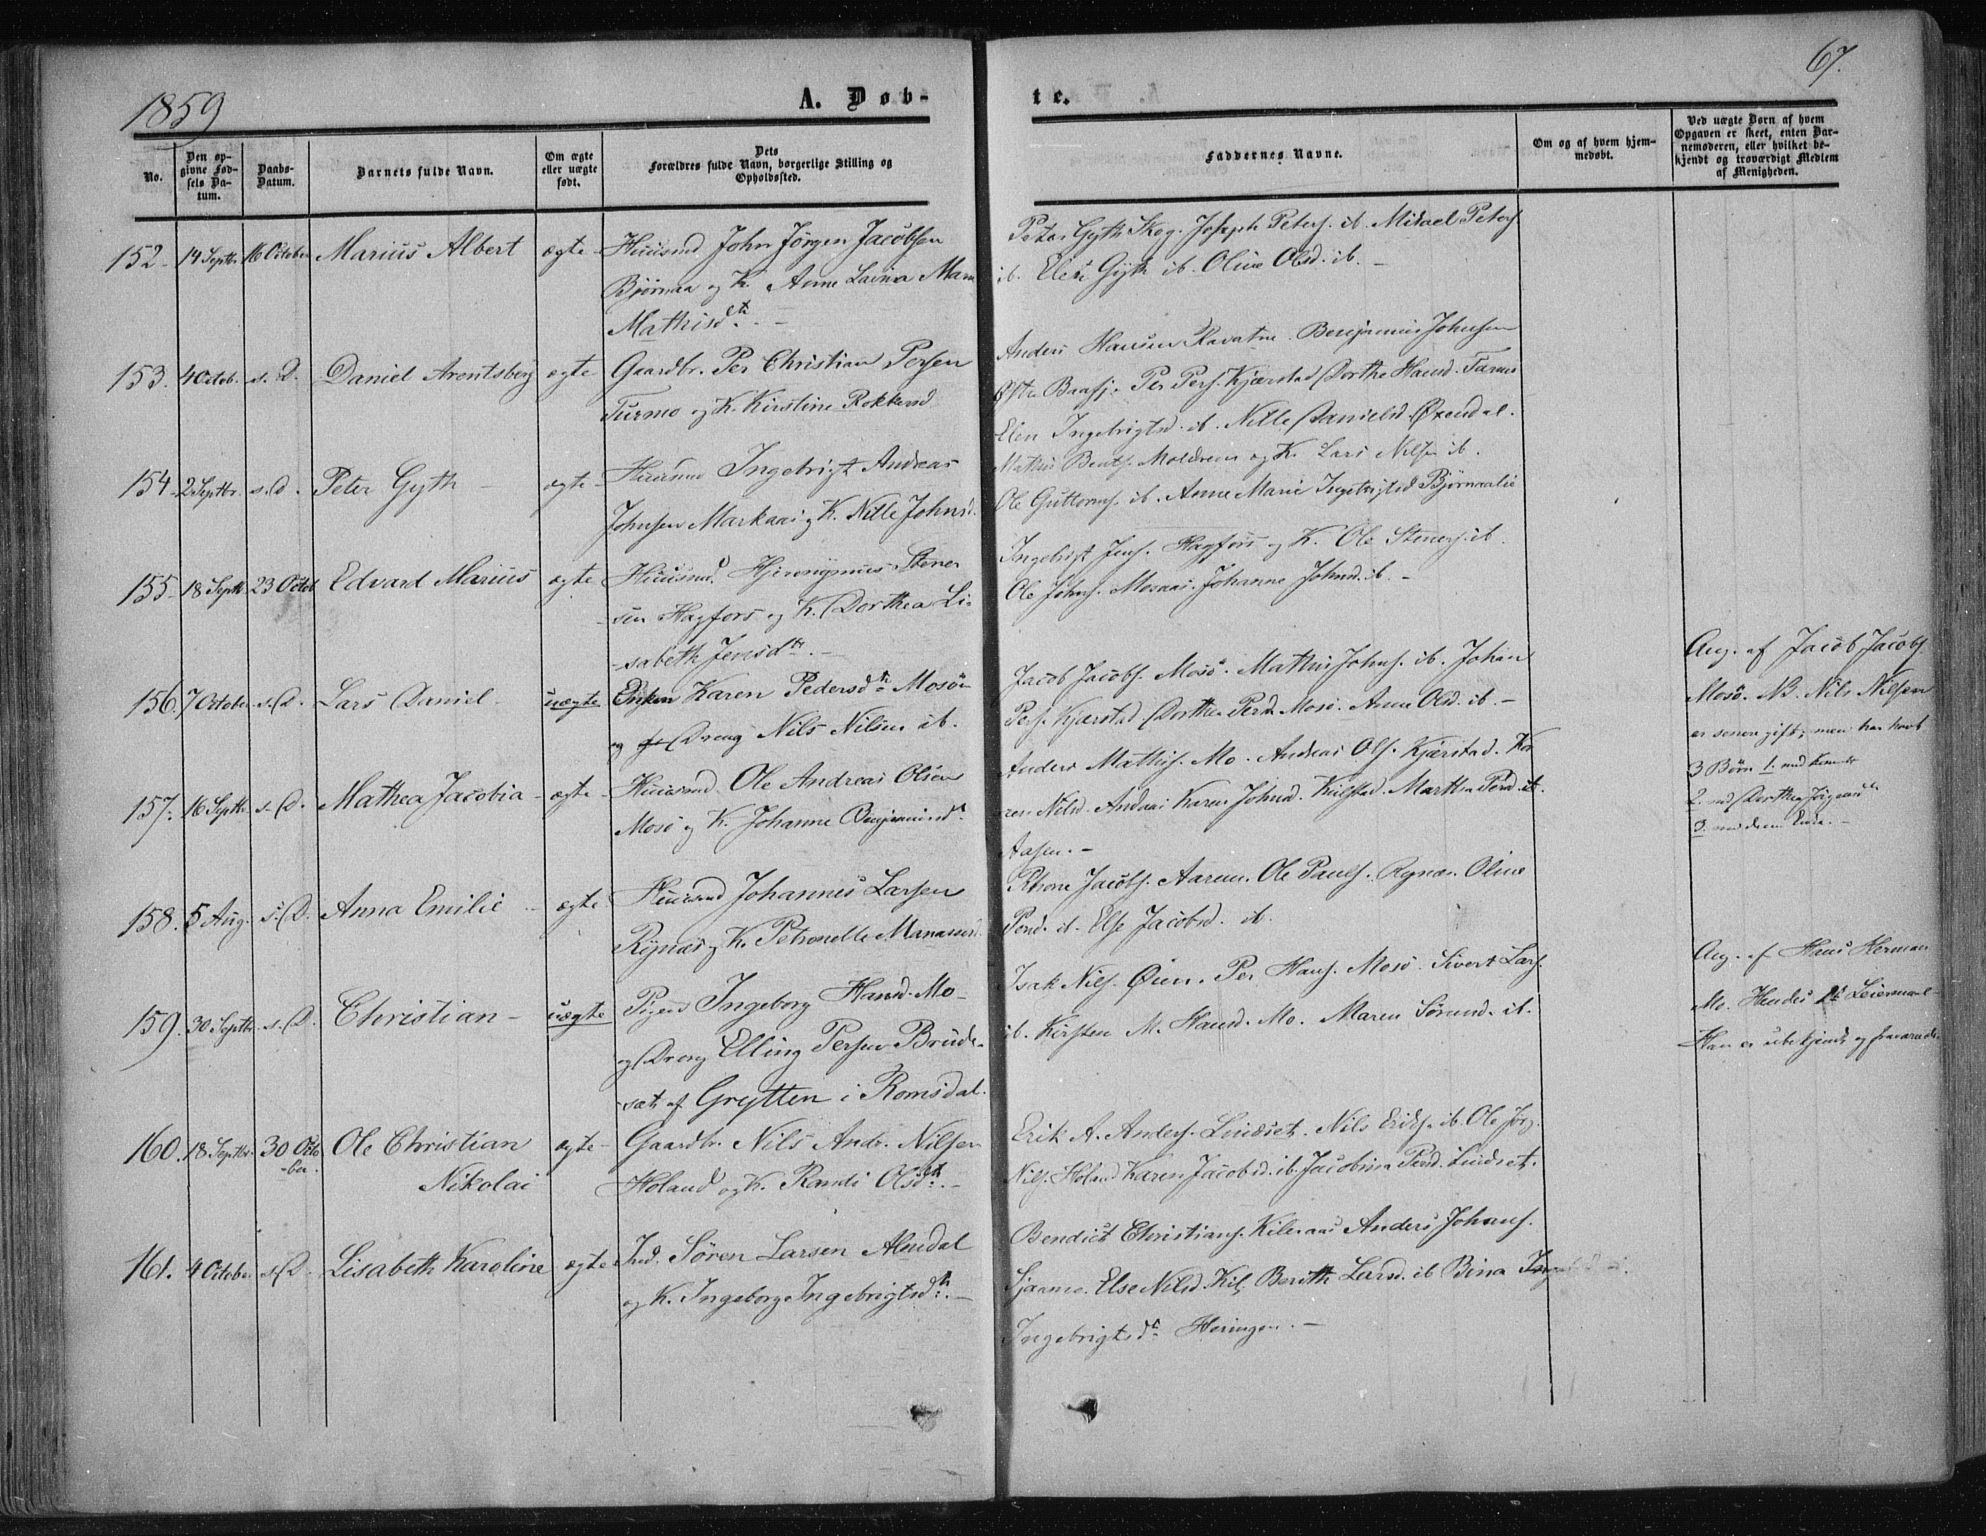 1859
A. Døb-
te.
67.
No.
Den op-
givne Fød-
sels Da-
tum.
Daabs-
Datum.
Barnets fulde Navn.
Om ægte
eller uægte
født.
Dets
Forældres fulde Navn, borgerlige Stilling og
Opholdssted.
Faddernes Navne.
Om og af hvem hjem-
medøbt.
Ved uægte Børn af hvem
Opgaven er skeet, enten Bar-
nemoderen, eller hvilket be-
kjendt og troværdigt Medlem
af Menigheden.
152 14 Septbr. 16 October Marius Albert ægte Huusmd John Jørgen Jacobsen
Bjørnaa og K. Anne Lavina
Mathisdtr.
Peter Gyth Skog. Joseph Peters. ib. Mikael Peters.
ib. Elen Gyth ib. Oline Olsd. ib.
153. 4 Octob. s. D. Daniel Arentsberg ægte Gaardbr. Per Christian Persen
Turmo og K. Kirstine
Anders Hansen Ravatne. Benjamin Johnsen
Per Pers. Kjærstad Dorthe Hansd.
Elen Ingebrigtsd. ib. Nille Danielsd. Øxendal.
154 2 Septbr. s. D. Peter Gyth ægte Huusmd Ingebrigt Andreas
Johnsen Markaas og K. Nille Johnsd.
Mathis Bents. og K. Lars Nilsen ib.
Ole Guttorms. ib. Anne Marie Ingebrigtsd Bjørnaalie
155 18 Septb. 23 Octob Edvard Marius ægte Huusmd. Hjeronymus Stener
sen Hagfors og K. Dorthea Li-
sabeth Jensdtr.
Ingebrigt Jens. Hagfors og K. Ole Steners. ib.
Ole Johns. Mosaas. Johanne Johnsd. ib.
156. 7 October s. D. Lars Daniel uægte Karen Pedersdtr Mosøen
og Dreng Nils Nilsen ib.
Jacob Jacobs. Mosø. Mathis Johns. ib. Johan
Pers. Kjærstad Dorthea Persd. Mosø. Anne Olsd. ib.
Ang. af Jacob Jacobs.
Mosø. NB. Nils Nilsen
er senere gift, men har havt
3 Børn 1. med
2. med Dorthea
3. med denne
157. 16 Septb. s. D. Mathea Jacobia ægte Huusmd Ole Andreas Olsen
Mosø og K. Johanne Benjaminsd.
Anders Mathis. Mo. Andreas Ols. Kjærstad. Ka
ren Nilsd. Karen Johnsd. Kulstad. Martha Persd. ib.
Aasen.
158. 5 Aug. s. D. Anna Emilie ægte Huusmd Johannes Larsen
Rynæs og K. Petronelle
Jacobs. Aarem. Ole Pauls. Rynæs. Oline
Persd. ib. Else Jacobsd. ib.
159. 30 Septbr. s. D. Christian uægte Pigen Ingeborg Hansd. Mo
og Dreng Elling Persen Brude-
sæt af Grytten i Romsdal.
Isak Nils. Øien. Per Hans. Mosø. Sivert Lars.
ib. Kirsten M. Hansd. Mo. Maren Sørensd. ib.
Ang. af Hans Herman
Mo. Hendes Leiermaal
Han er ubekjendt og fraværende.
160. 18 Septbr. 30 Octo
ber. Ole Christian
Nikolai ægte Gaardbr. Nils Andr. Nilsen
Holand og K. Randi Olsdtr.
Erik A. Anders. Lindset. Nils Eriks. ib. Ole Jørg.
Nils. Holand Karen Jacobsd. ib. Jacobina Persd. Lindset.
161. 4 October s. D. Lisabeth Karoline ægte Ind. Søren Larsen Almdal
og K. Ingeborg Ingebrigtsdtr.
Bendict Christians. Kileraas Anders Johans.
Sjaamo. Else Nilsd. Kil. Berith Larsd. ib Bina
Ingebrigtsdtr Heringen.